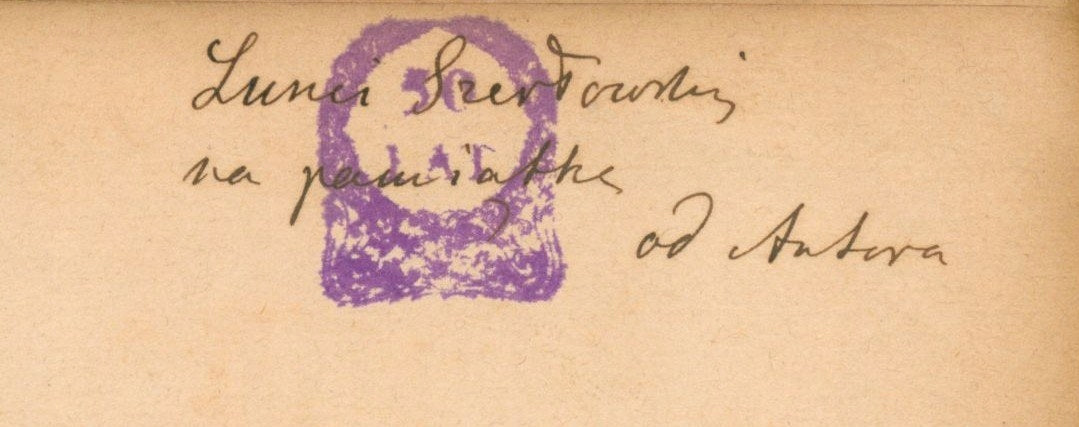 Lunci Szerłowskiej
na pamiątkę
od Autora
50
LAT